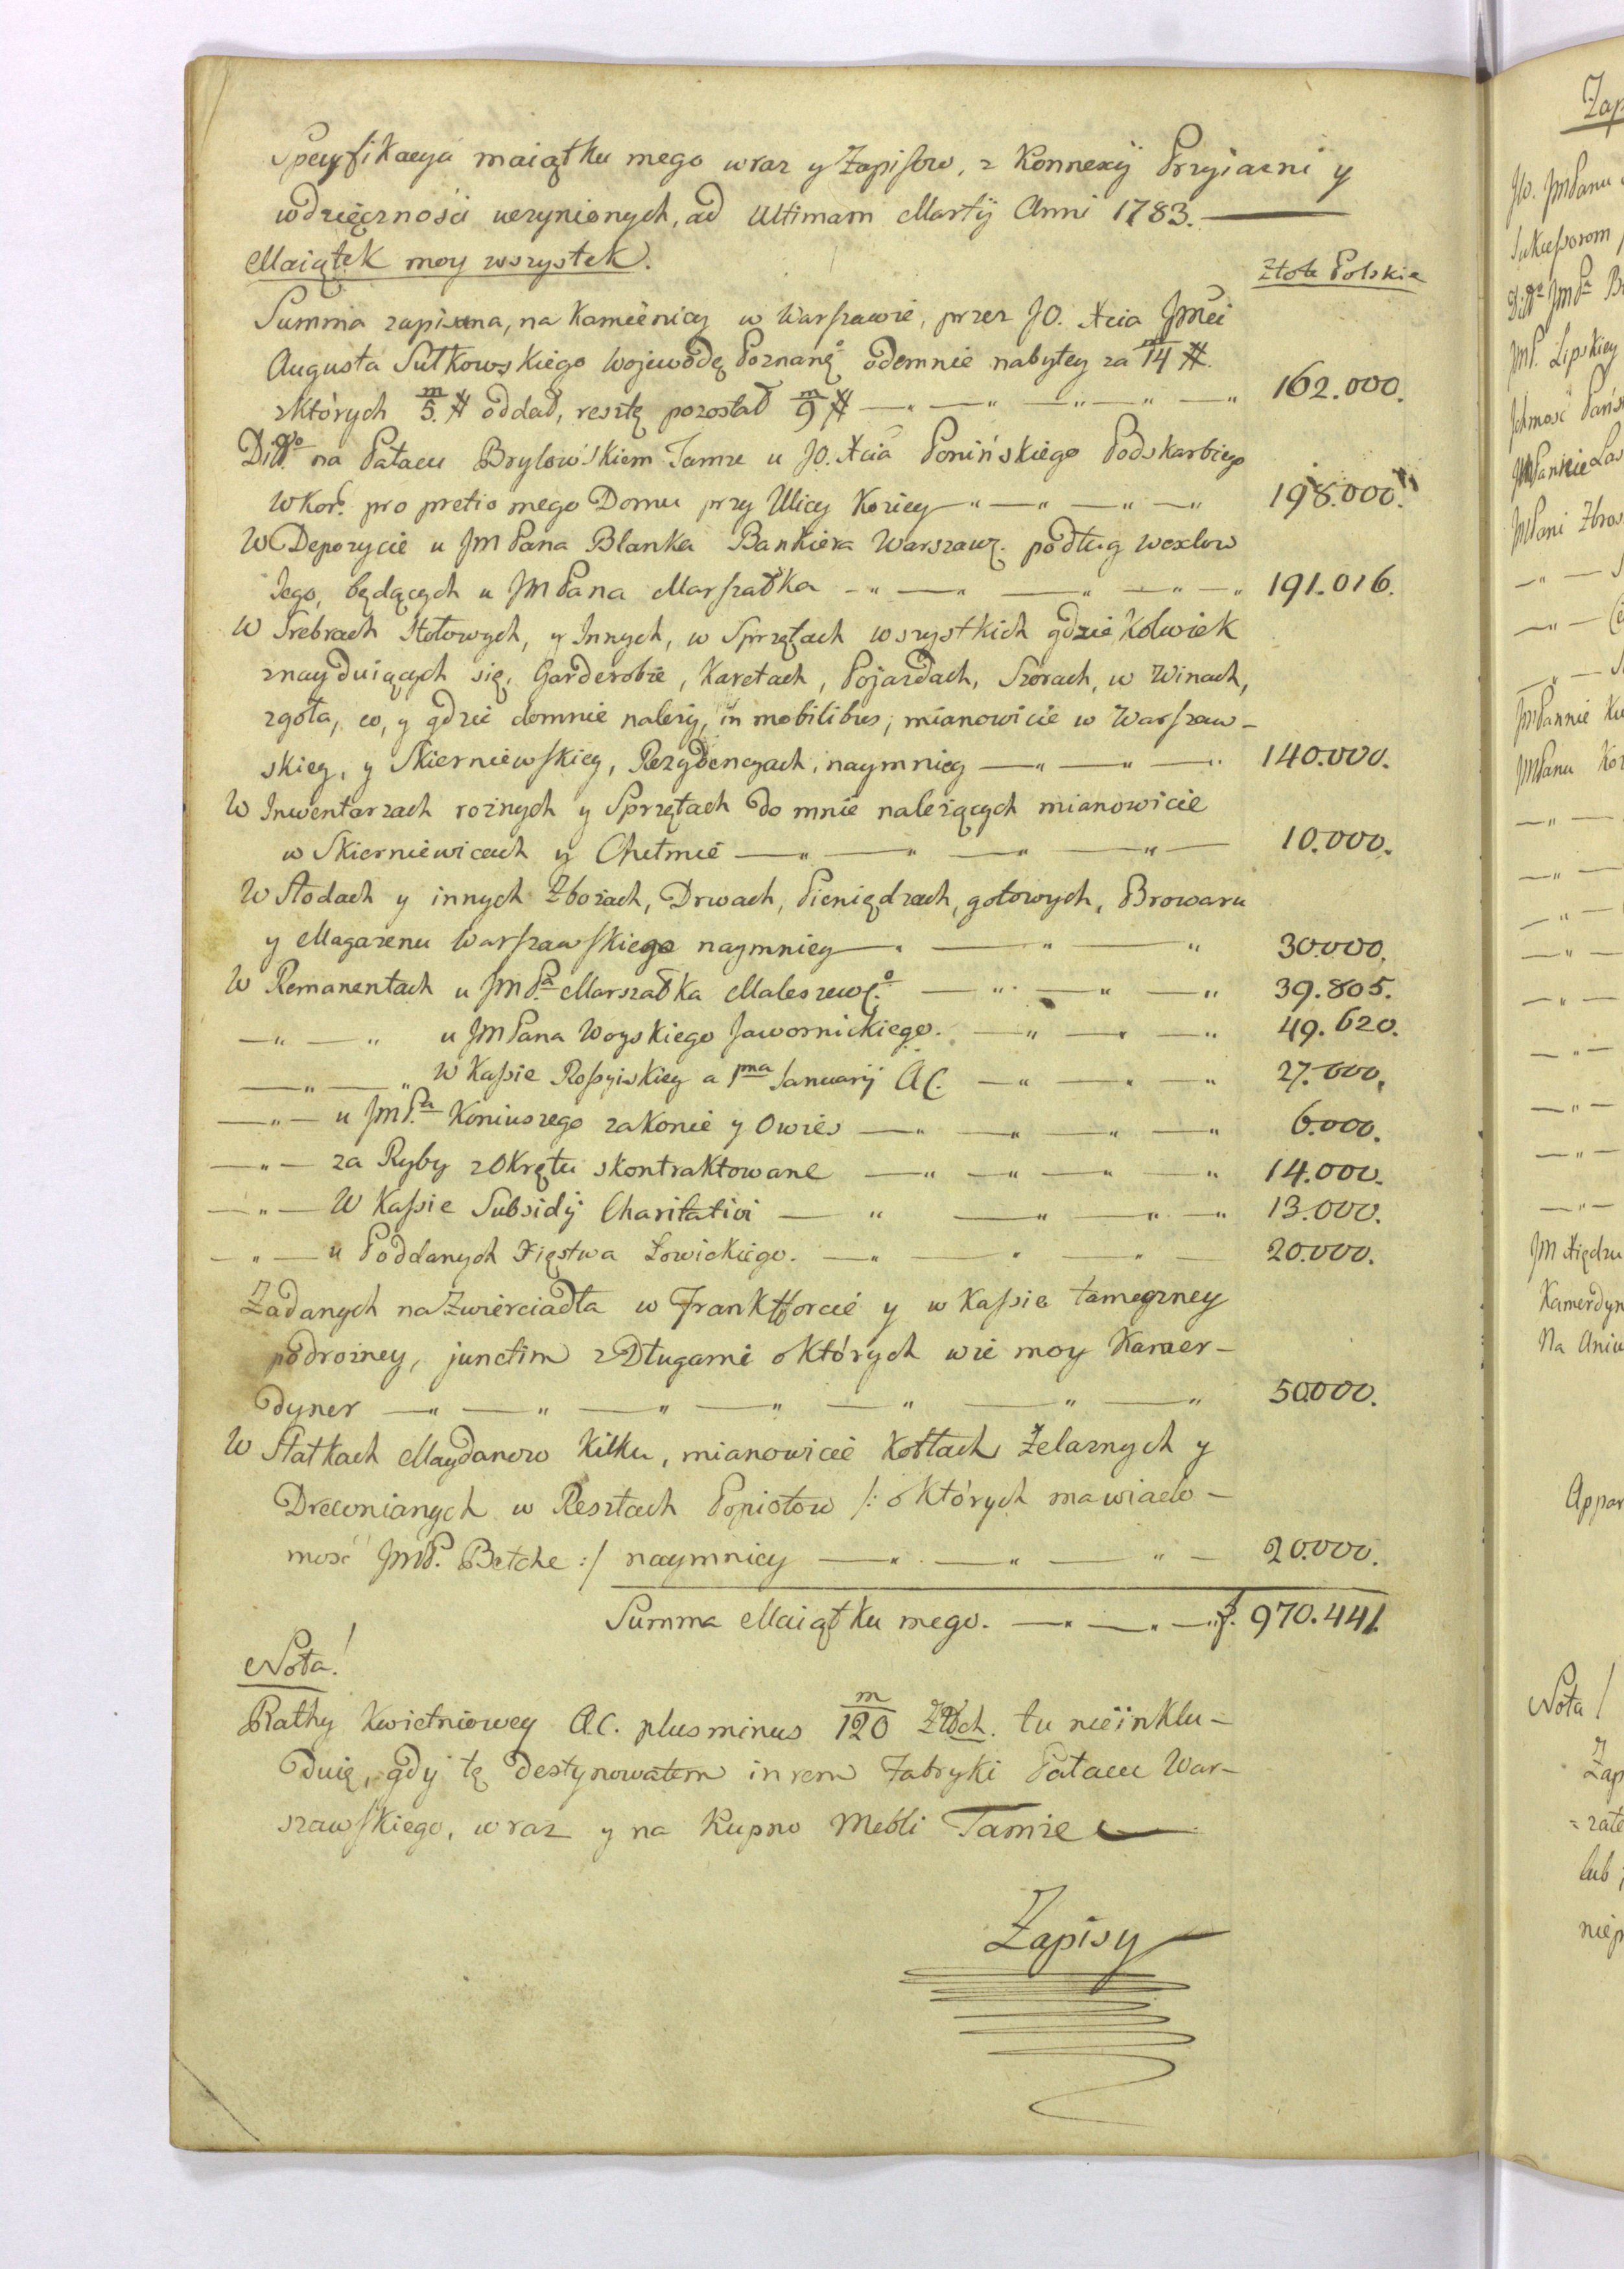 Specyfikacya maiątku mego wraz y Zapisow, z Konnexij Przyiazni y
wdzięcznosci uczynionych, ad Ultimam Martij Anni 1783.
Maiątek moy wszystek.
Złote Polskie
Summa zapisana, na Kamienicy w Warszawie, przez JO. Xcia Jmci
Augusta Sułkowskiego Wojewodę Poznanͦ odemnie nabytey za m/14 #.
zktórych m/5. # oddał, resztę pozostał m/9 # — 162.000.
Ditto na Pałacu Brylowskiem Tamże u JO. Xcia Ponińskiego Podskarbiego
WKorͦ. pro pretio mego Domu przy Ulicy Koziey — 198.000.
W Depozycie u JMPana Blanka Bankiera Warszaw. podług wexlow
Iego, będących u JMPana Marszałka — 191.016.
W Srebrach Stołowych, y Innych, w Sprzętach wszystkich gdzie Kolwiek
znayduiących się, Garderobie, Karetach, Pojazdach, Szorach, w Winach,
zgoła, co, y gdzie domnie należy, in mobilibus, mianowicie w Warszaw-
skiey, y Skierniewskiey, Rezydencyach, naymniey — 140.000.
W Inwentarzach rożnych y Sprzętach do mnie należących mianowicie
w Skierniewicach y Chełmie — 10.000.
W Słodach y innych Zbożach, Drwach, Pieniędzach, gotowych, Browaru
y Magazenu Warszawskiego naymniey — 30.000.
W Remanentach u JMPa Marszałka Maleszewͦ. — 39.805.
—"—" u JMPana Woyskiego Jawornickiego. — 49.620.
—"—" W Kassie Rossyiskiey a 1ma Ianuarij A.C. — 27.000.
—"— u JMPa Koniuszego zaKonie y Owies — 6.000.
—"— za Ryby zOkrętu skontraktowane — 14.000.
—"— W Kassie Subsidij Charitativi — 13.000.
—"— u Poddanych Xięstwa Łowickiego. — 20.000.
Zadanych na Zwierciadła w Frankfforcie y w Kassie tameczney
podrożney, junctim z Długami o Których wie moy Kamer-
dyner — 50.000.
W Statkach Maydanow Kilku, mianowicie Kotłach Żelaznych y
Drewnianych w Resztach Popiołow /: o Których ma wiado-
mosć JMP. Betche :/ naymniey — 20.000.
Summa Maiątku mego. — f. 970.441.
Nota!
Rathy Kwietniowey A.C. plus minus m/120 Złłch. tu nie inklu-
duię, gdy tę destynowałem in rem Fabryki Pałacu War-
szawskiego, wraz y na Kupno Mebli Tamże
Zapisy